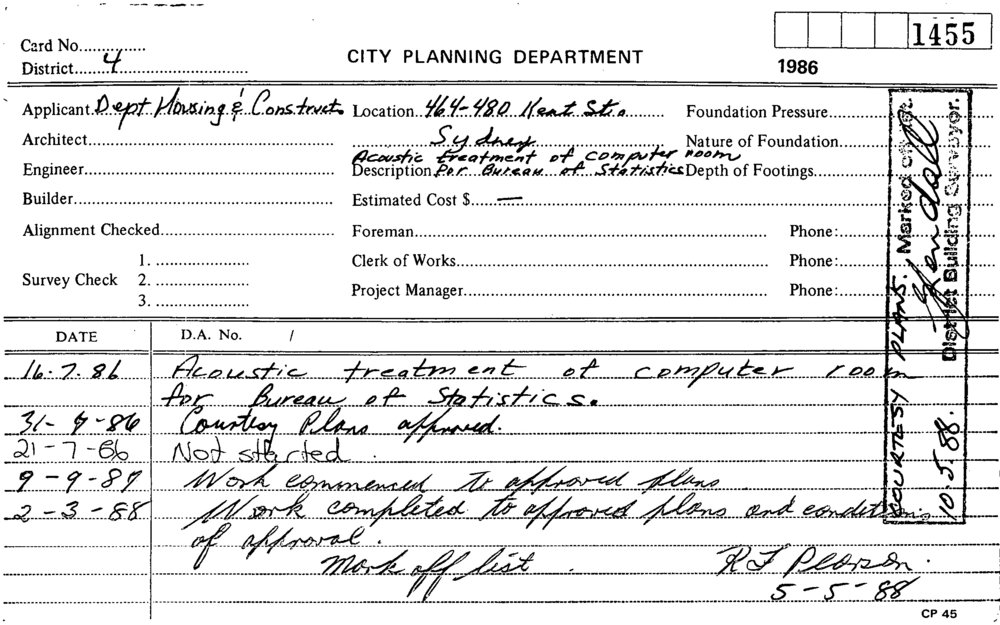 1455
Card No...............
District........4..............................
CITY PLANNING DEPARTMENT
1986
Applicant Dept Housing & Construct. Location 464-480 Kent St. Foundation Pressure
Architect Sydney Nature of Foundation
Acoustic treatment of computer room
Engineer Description for Bureau of Statistics Depth of Footings
Builder Estimated Cost $ —
Alignment Checked Foreman Phone:
1. Clerk of Works Phone:
Survey Check 2.
Project Manager Phone:
3.
COURTESY PLANS. Marked off
District Building Surveyor.
10.5.88.
DATE D.A. No. /
16.7.86 Acoustic treatment of computer room
for Bureau of Statistics.
31-7-86 Courtesy Plans approved.
21-7-86 Not started.
9-9-87 Work commenced to approved plans
2-3-88 Work completed to approved plans and conditions
of approval.
Mark off list. R F Pearson.
5-5-88
CP 45